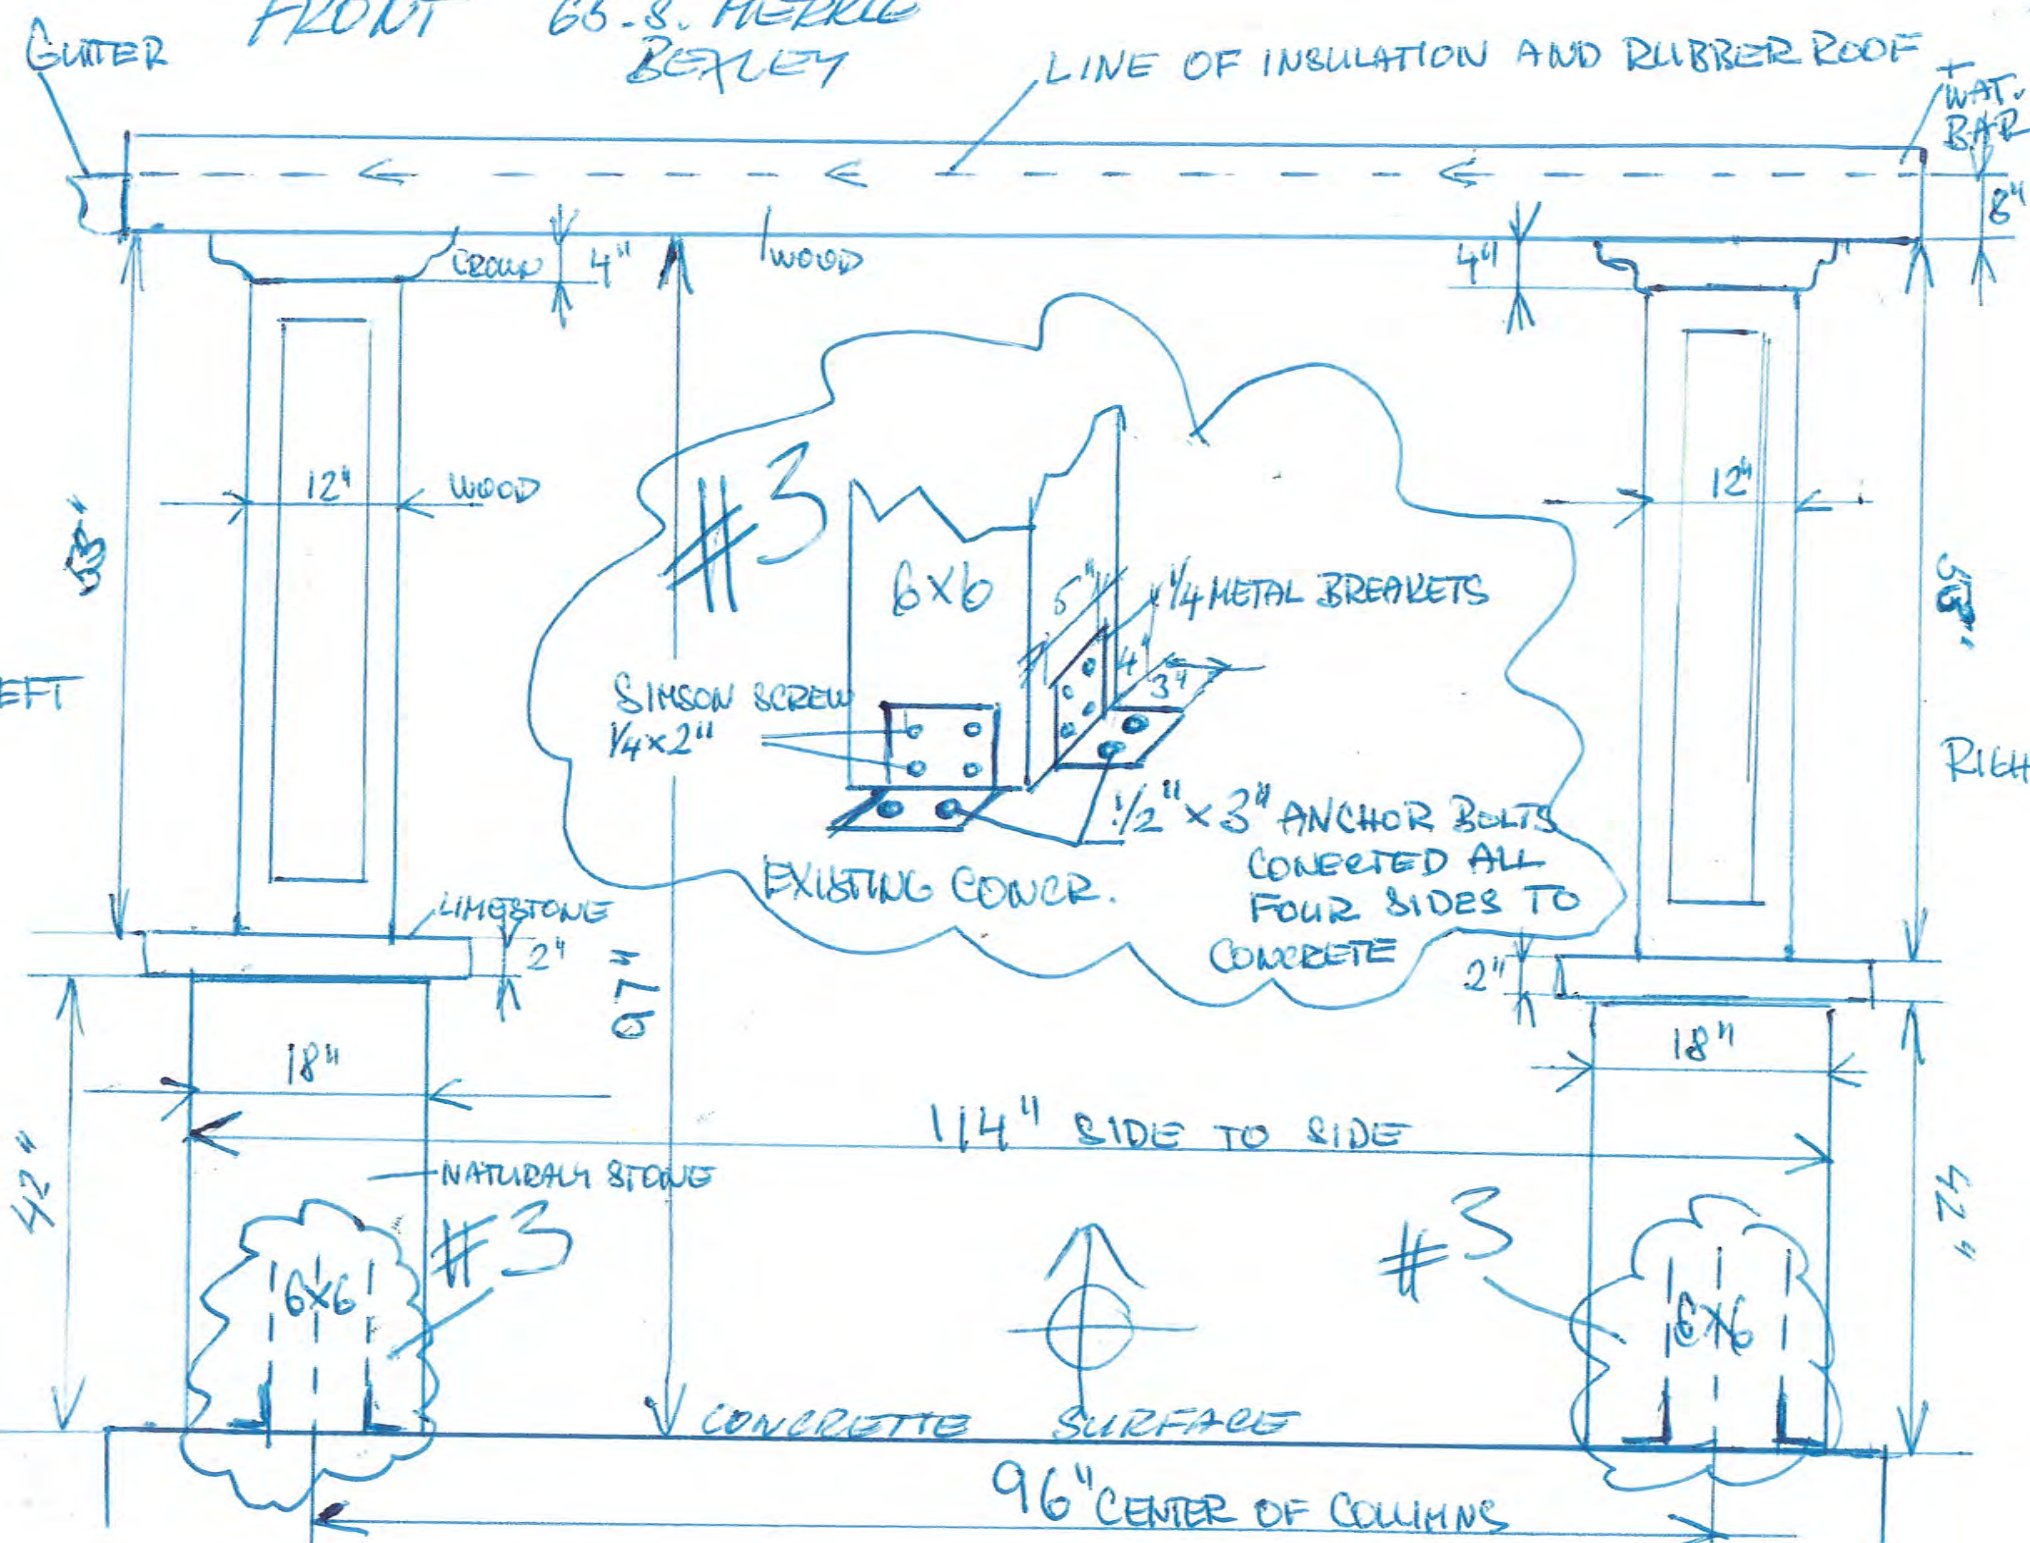 FRONT 65 S. MERKLE
BEXLEY
GUTTER
LINE OF INSULATION AND RUBBER ROOF
+
WAT.
BAR
8"
CROWN
4"
WOOD
4"
12"
WOOD
12"
53"
53"
#3
6X6
5"
1/4 METAL BREAKETS
4"
3"
SIMSON SCREW
1/4x2"
EFT
RIGH
1/2" x 3" ANCHOR BOLTS
CONECTED ALL
FOUR SIDES TO
CONCRETE
EXISTING CONCR.
LIMESTONE
2"
2"
97"
18"
18"
114" SIDE TO SIDE
42"
42"
NATURALY STONE
#3
#3
6X6
6X6
CONCRETTE SURFACE
96" CENTER OF COLUMNS